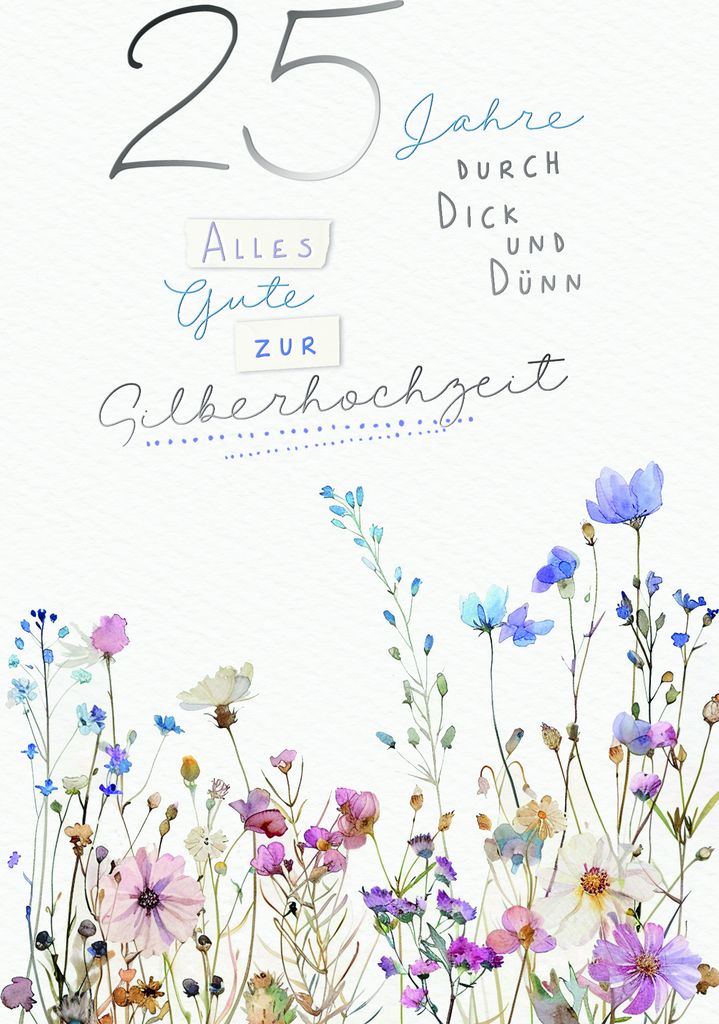 25 Jahre
DURCH
DICK
UND
DÜNN
ALLES
Gute
ZUR
Silberhochzeit